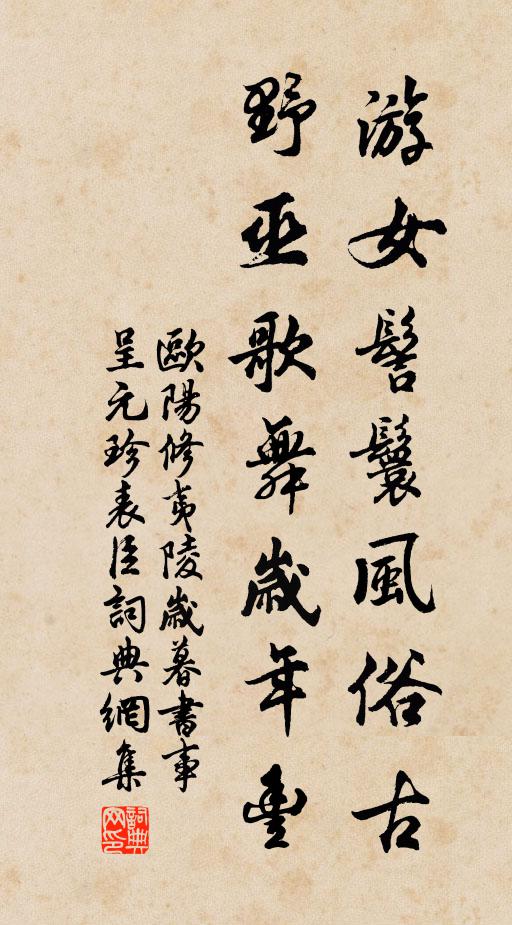 游女髻鬟風俗古
野巫歌舞歲年豐
歐陽修夷陵歲暮書事
呈元珍表臣詞典網集
詞典网印